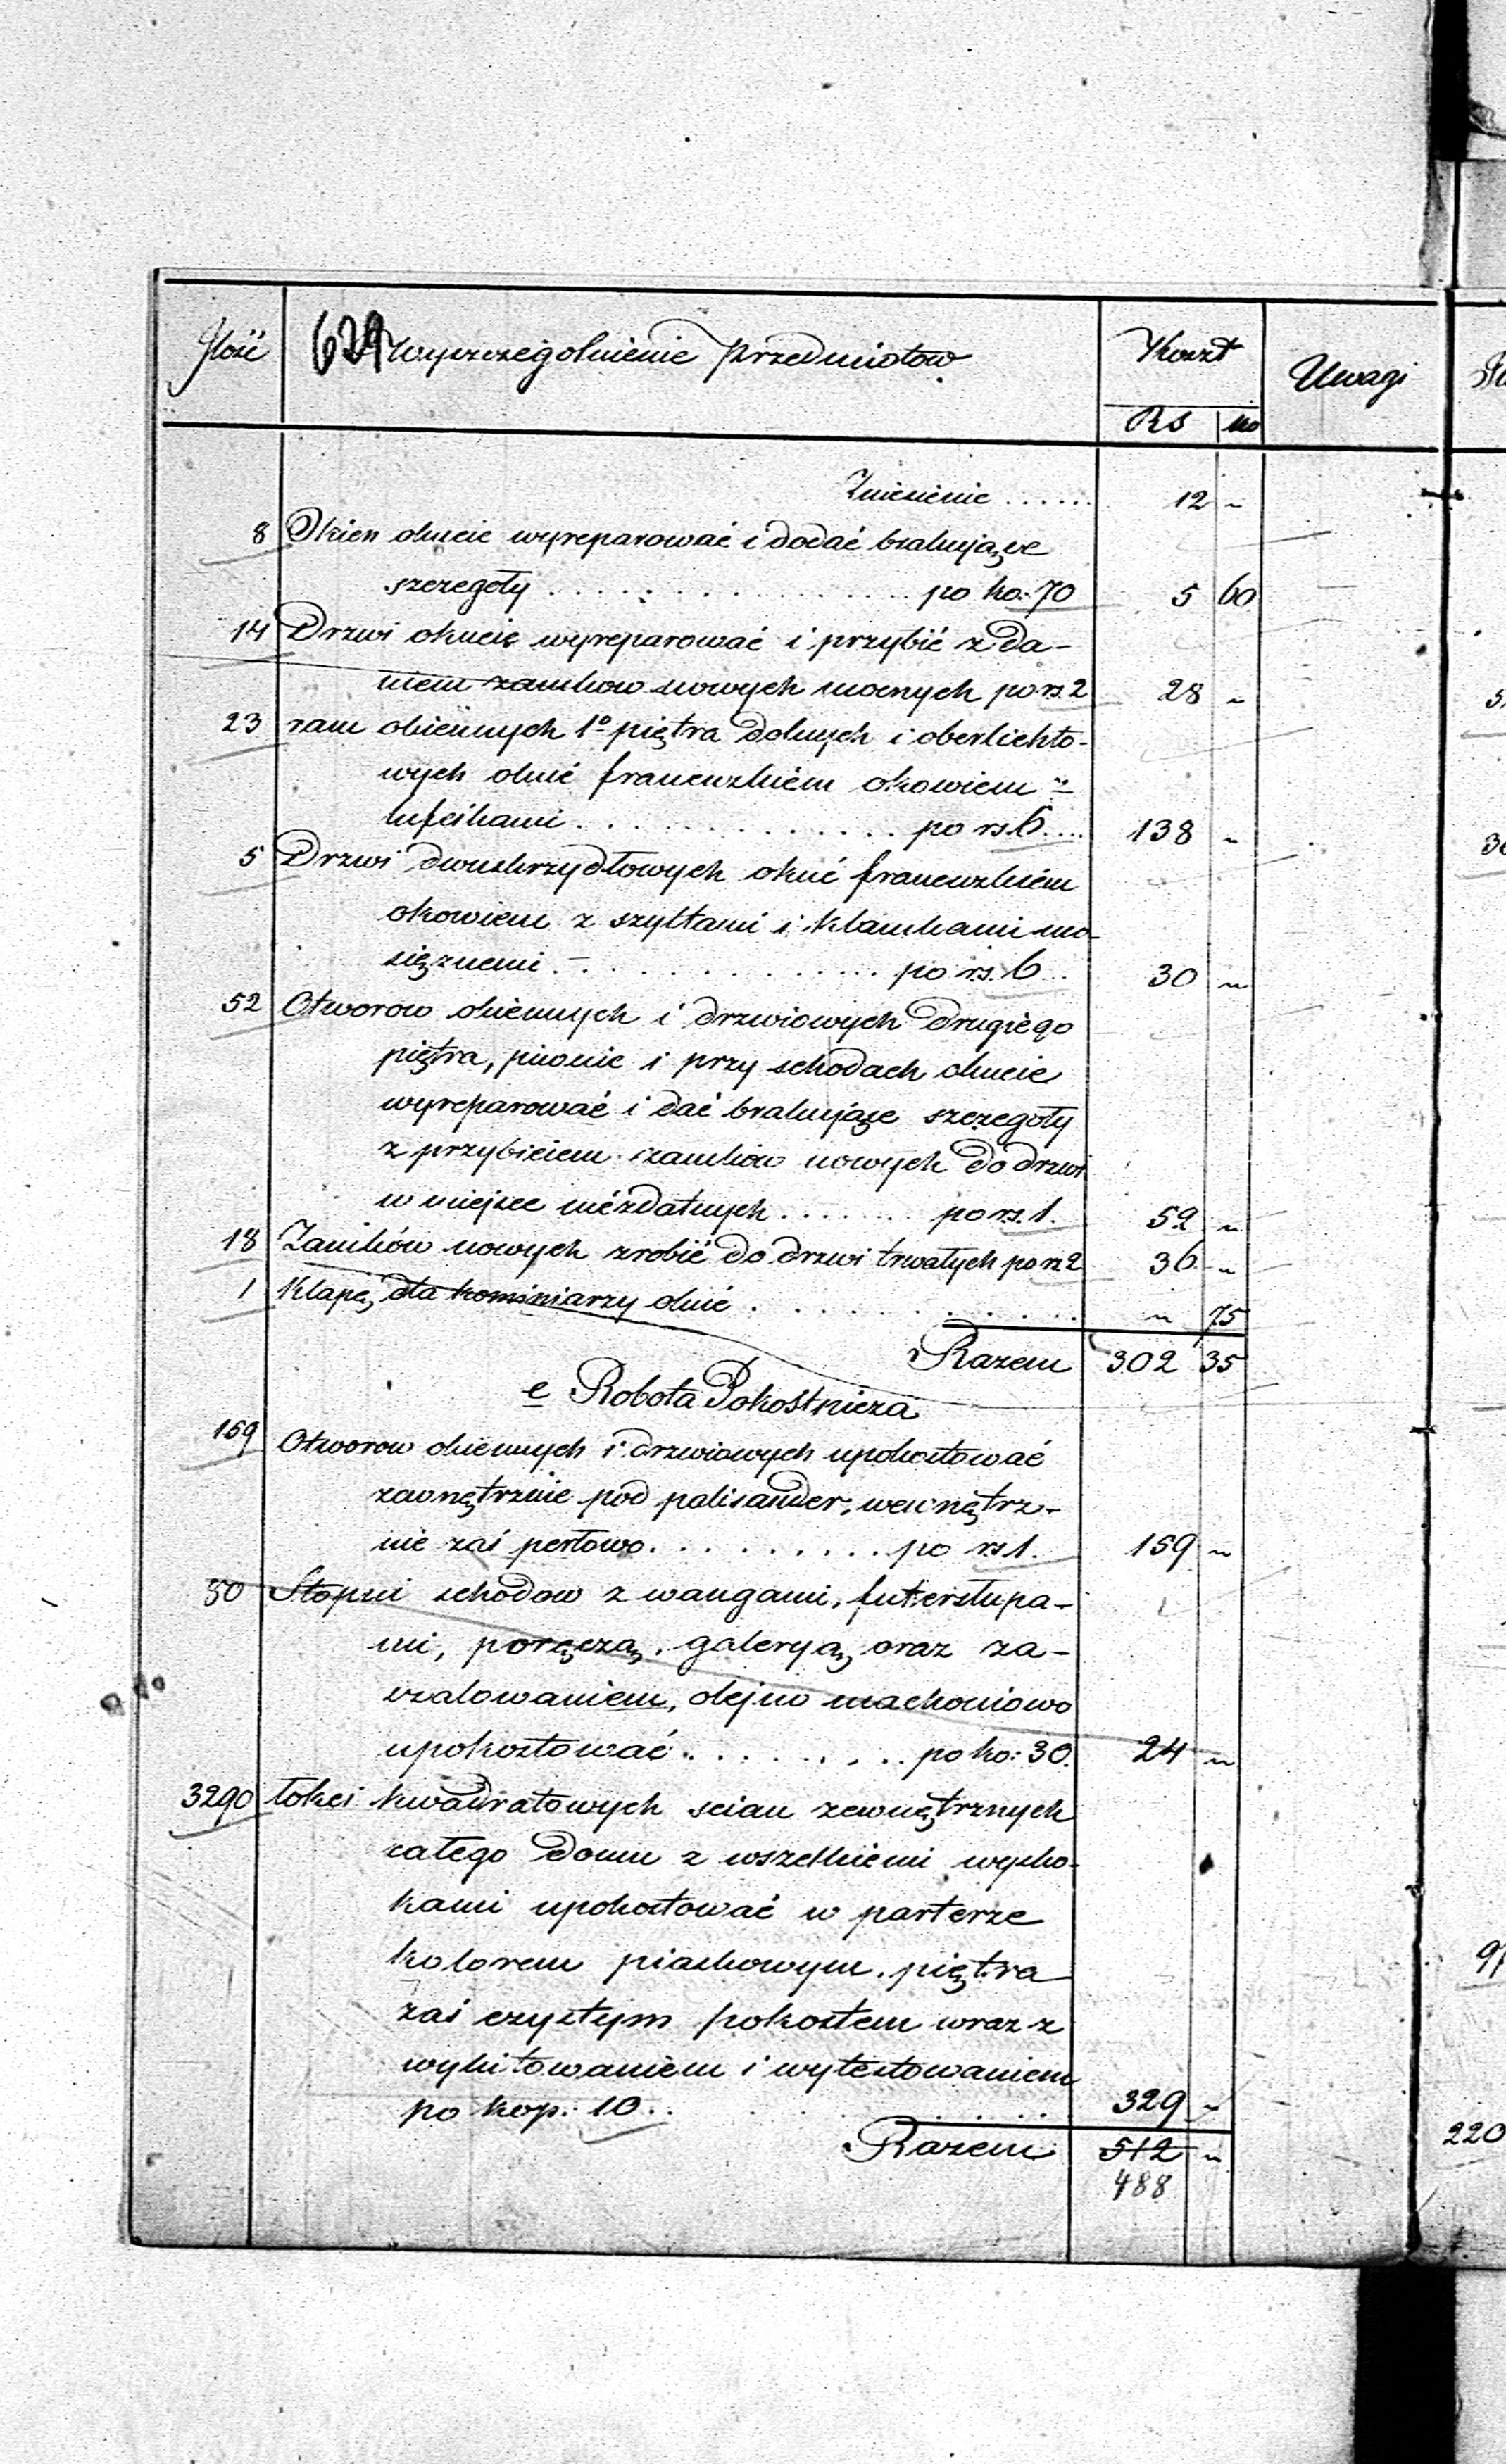 Ilość 629 Wyszczegolnienie przedmiotow Koszt Uwagi
Rs ko
Zniesienie ...... 12 "
8 Okien okucie wyreparować i dodać brakujące
szczegoły ............ po ko: 70 5 60
14 Drzwi okucie wyreparować i przybić z da-
niem zamkow nowych mocnych po rs. 2 28 "
23 ram okiennych 1º piętra dolnych i oberlichto-
wych okuć francuzkiem okowiem z
lufcikami ............ po rs 6 .... 138 "
5 Drzwi dwuskrzydłowych okuć francuzkiém
okowiem z szyltami i klamkami mo-
siężnemi ............ po rs. 6 .. 30 "
52 Otworow okiennych i drzwiowych drugiego
piętra, piwnic i przy schodach okucie
wyreparować i dać brakujące szczegoły
z przybiciem zamkow nowych do drzwi
w miejsce niezdatnych ....... po rs. 1. 52 "
18 Zamków nowych zrobić do drzwi trwałych po rs. 2 36 "
1 Klapę dla kominiarzy okuć ............ " 75
Razem 302 35
e Robota Pokostnicza
159 Otworow okiennych i drzwiowych upokostować
zewnętrznie pod palisander, wewnętrz-
nie zaś perłowo ......... po rs 1. 159 "
80 Stopni schodow z wangami, futersztupa-
mi, poręczą, galeryą oraz za-
szalowaniem, olejno machoniowo
upokostować ......... po ko: 30. 24 "
3290 łokci kwadratowych scian zewnętrznych
całego domu z wszelkiémi wysko-
kami upokostować w parterze
kolorem piaskowym, piętra
zaś czystym pokostem wraz z
wykitowaniem i
po kop: 10 .. 329 "
Razem 512 "
488
220